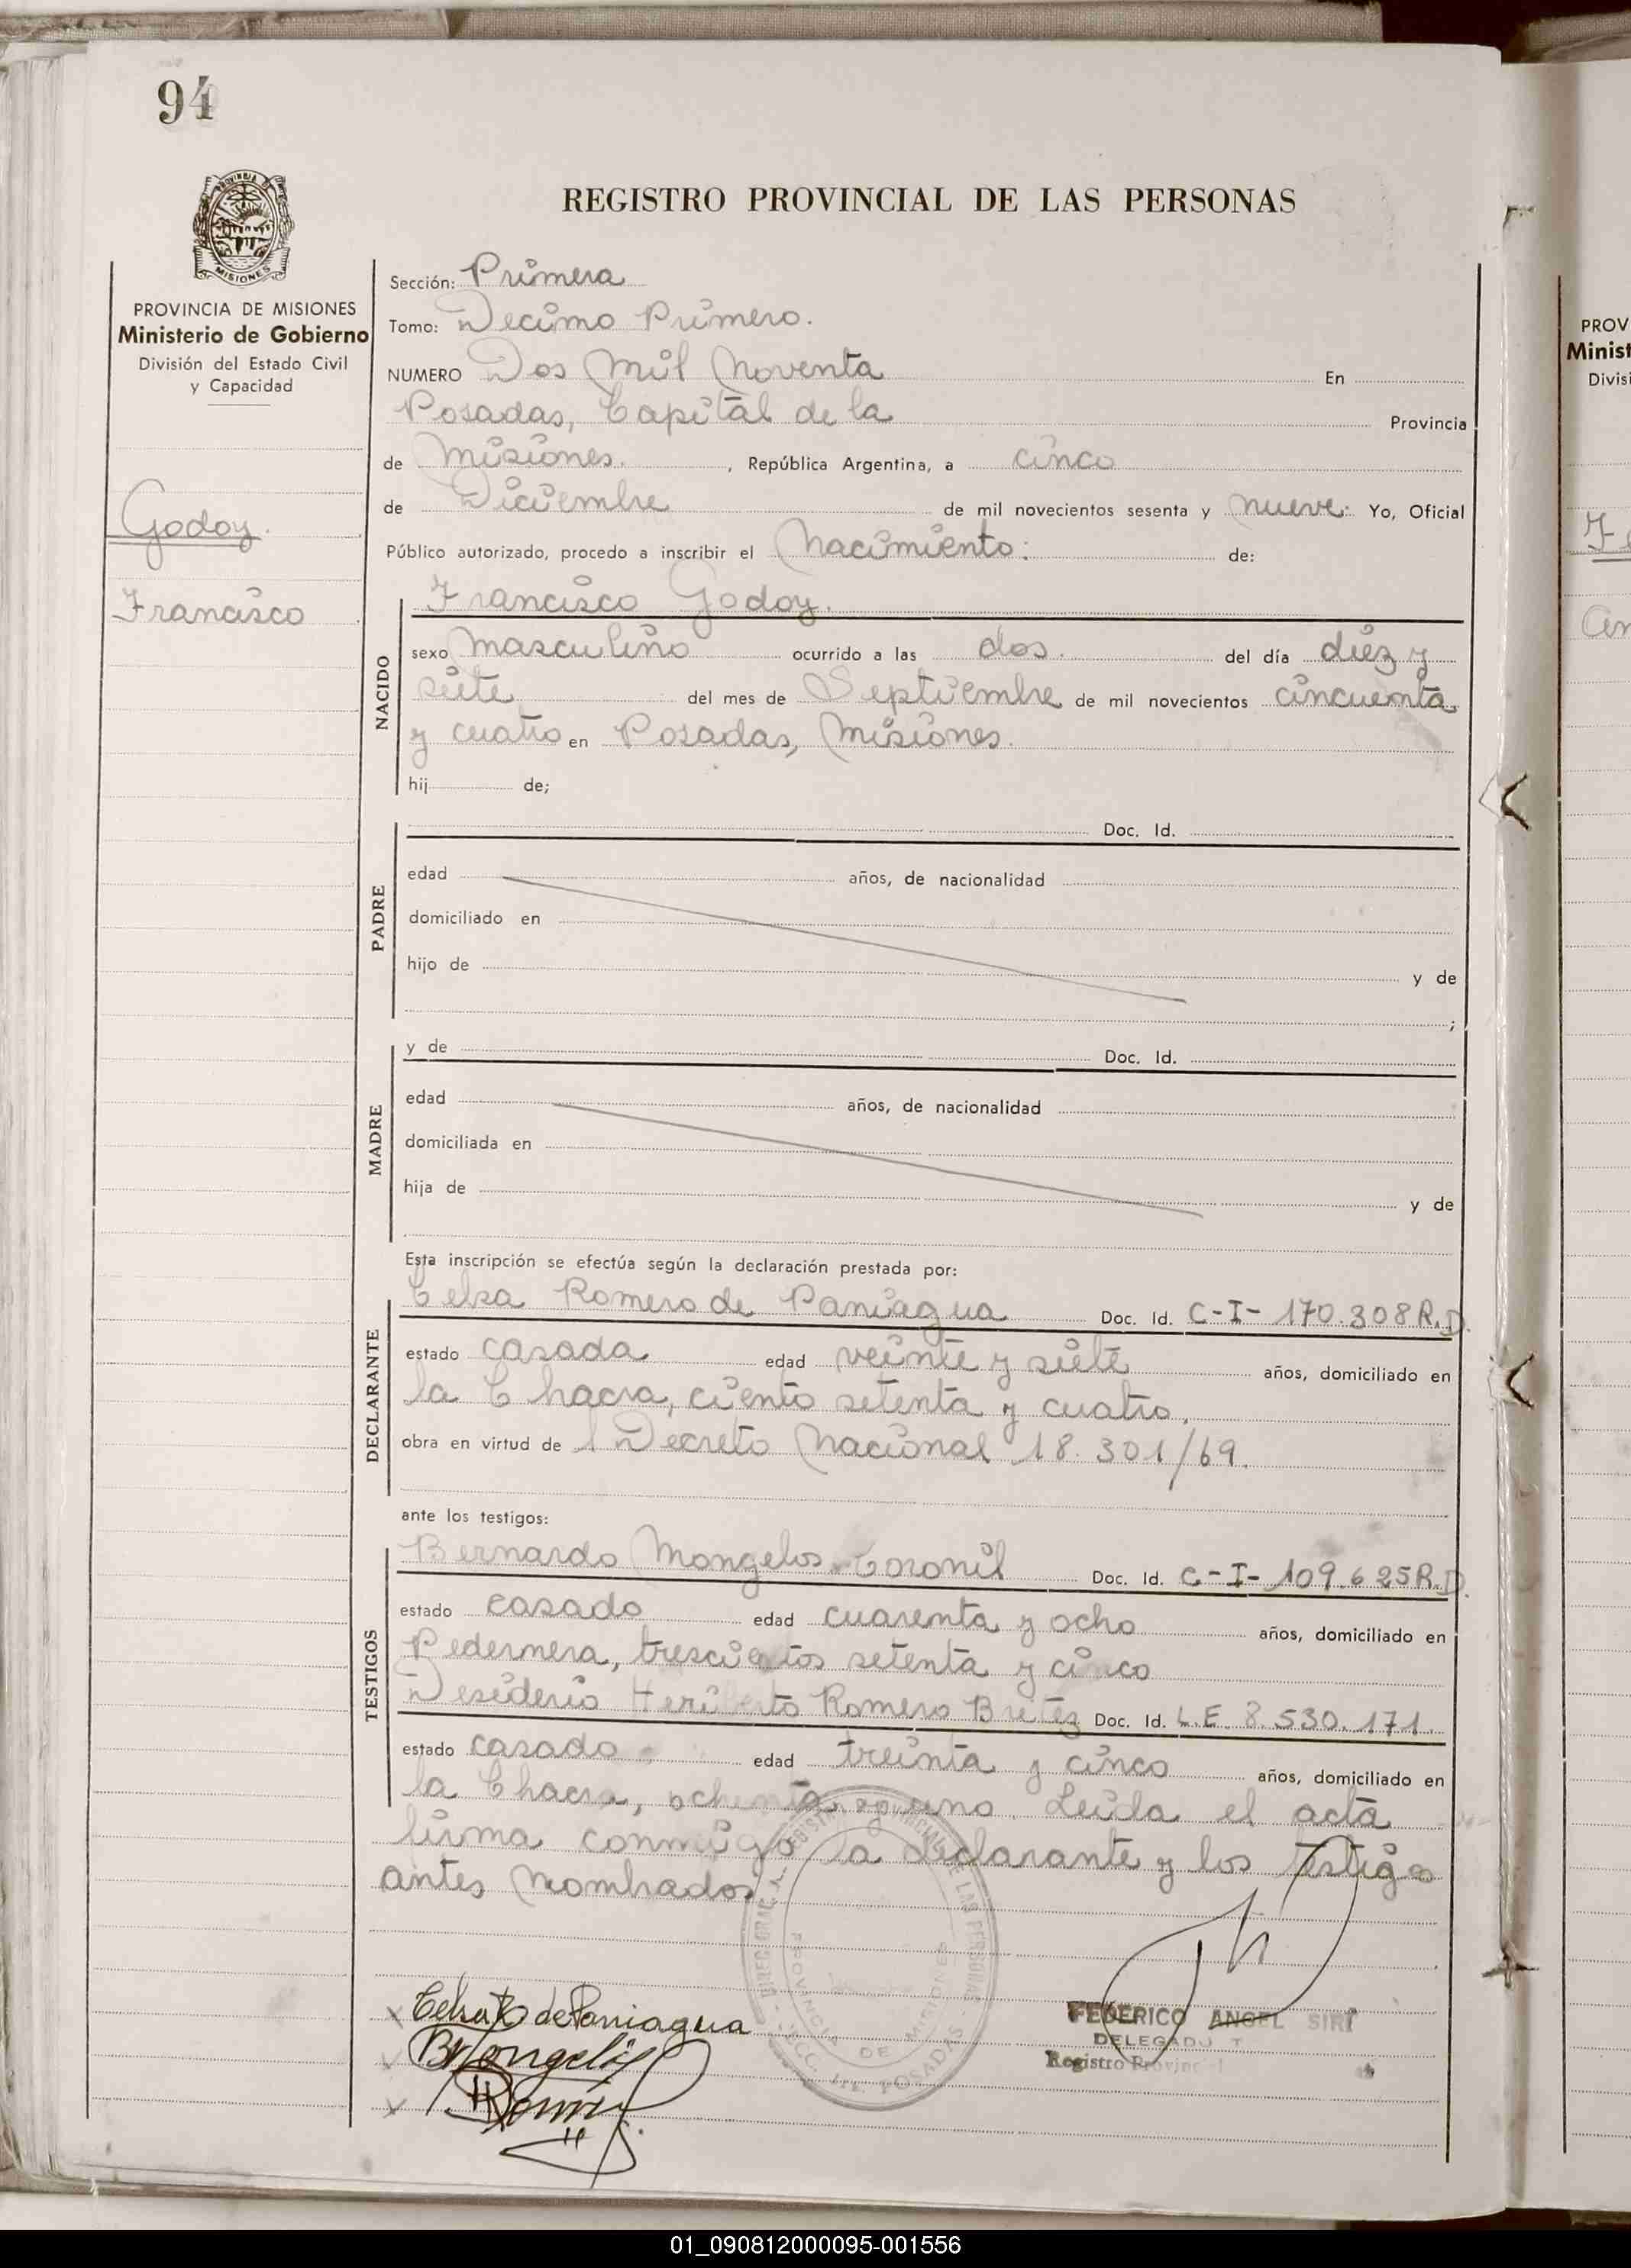 94
REGISTRO PROVINCIAL DE LAS PERSONAS
MISIONES
PROVINCIA DE MISIONES
Ministerio de Gobierno
División del Estado Civil
y Capacidad
Godoy.
Francisco
Sección: Primera
Tomo: Decimo Primero.
NUMERO Dos Mil Noventa En
Posadas, Capital de la Provincia
de Misiones. , República Argentina, a cinco
de Diciembre de mil novecientos sesenta y nueve. Yo, Oficial
Público autorizado, procedo a inscribir el Nacimiento: de:
NACIDO
Francisco Godoy.
sexo masculino ocurrido a las dos. del día diez y
siete del mes de Septiembre de mil novecientos cincuenta
y cuatro en Posadas, Misiones.
hij de;
PADRE
Doc. Id.
edad años, de nacionalidad
domiciliado en
hijo de y de
;
MADRE
y de Doc. Id.
edad años, de nacionalidad
domiciliada en
hija de y de
Esta inscripción se efectúa según la declaración prestada por:
DECLARANTE
Celsa Romero de Paniagua Doc. Id. C-I- 170.308 R.D.
estado casada edad veinte y siete años, domiciliado en
la Chacra, ciento setenta y cuatro.
obra en virtud de l Decreto Nacional 18.301/69.
ante los testigos:
TESTIGOS
Bernardo Mongelos Coronil Doc. Id. C-I- 109.625 R.D.
estado casado edad cuarenta y ocho años, domiciliado en
Pedernera, trescientos setenta y cinco
Desiderio Heriberto Romero Britez Doc. Id. L.E. 8.530.171.
estado casado edad treinta y cinco años, domiciliado en
la Chacra, ochenta y uno. Leida el acta
firma conmigo la declarante y los testigos
antes nombrados
Celsa R de Paniagua
BMongelós
FEDERICO ANGEL SIRI
DELEGADO T
Registro Provincial
PROVINCIA DE MISIONES
POSADAS
PROV
Minist
Divisi
01_090812000095-001556